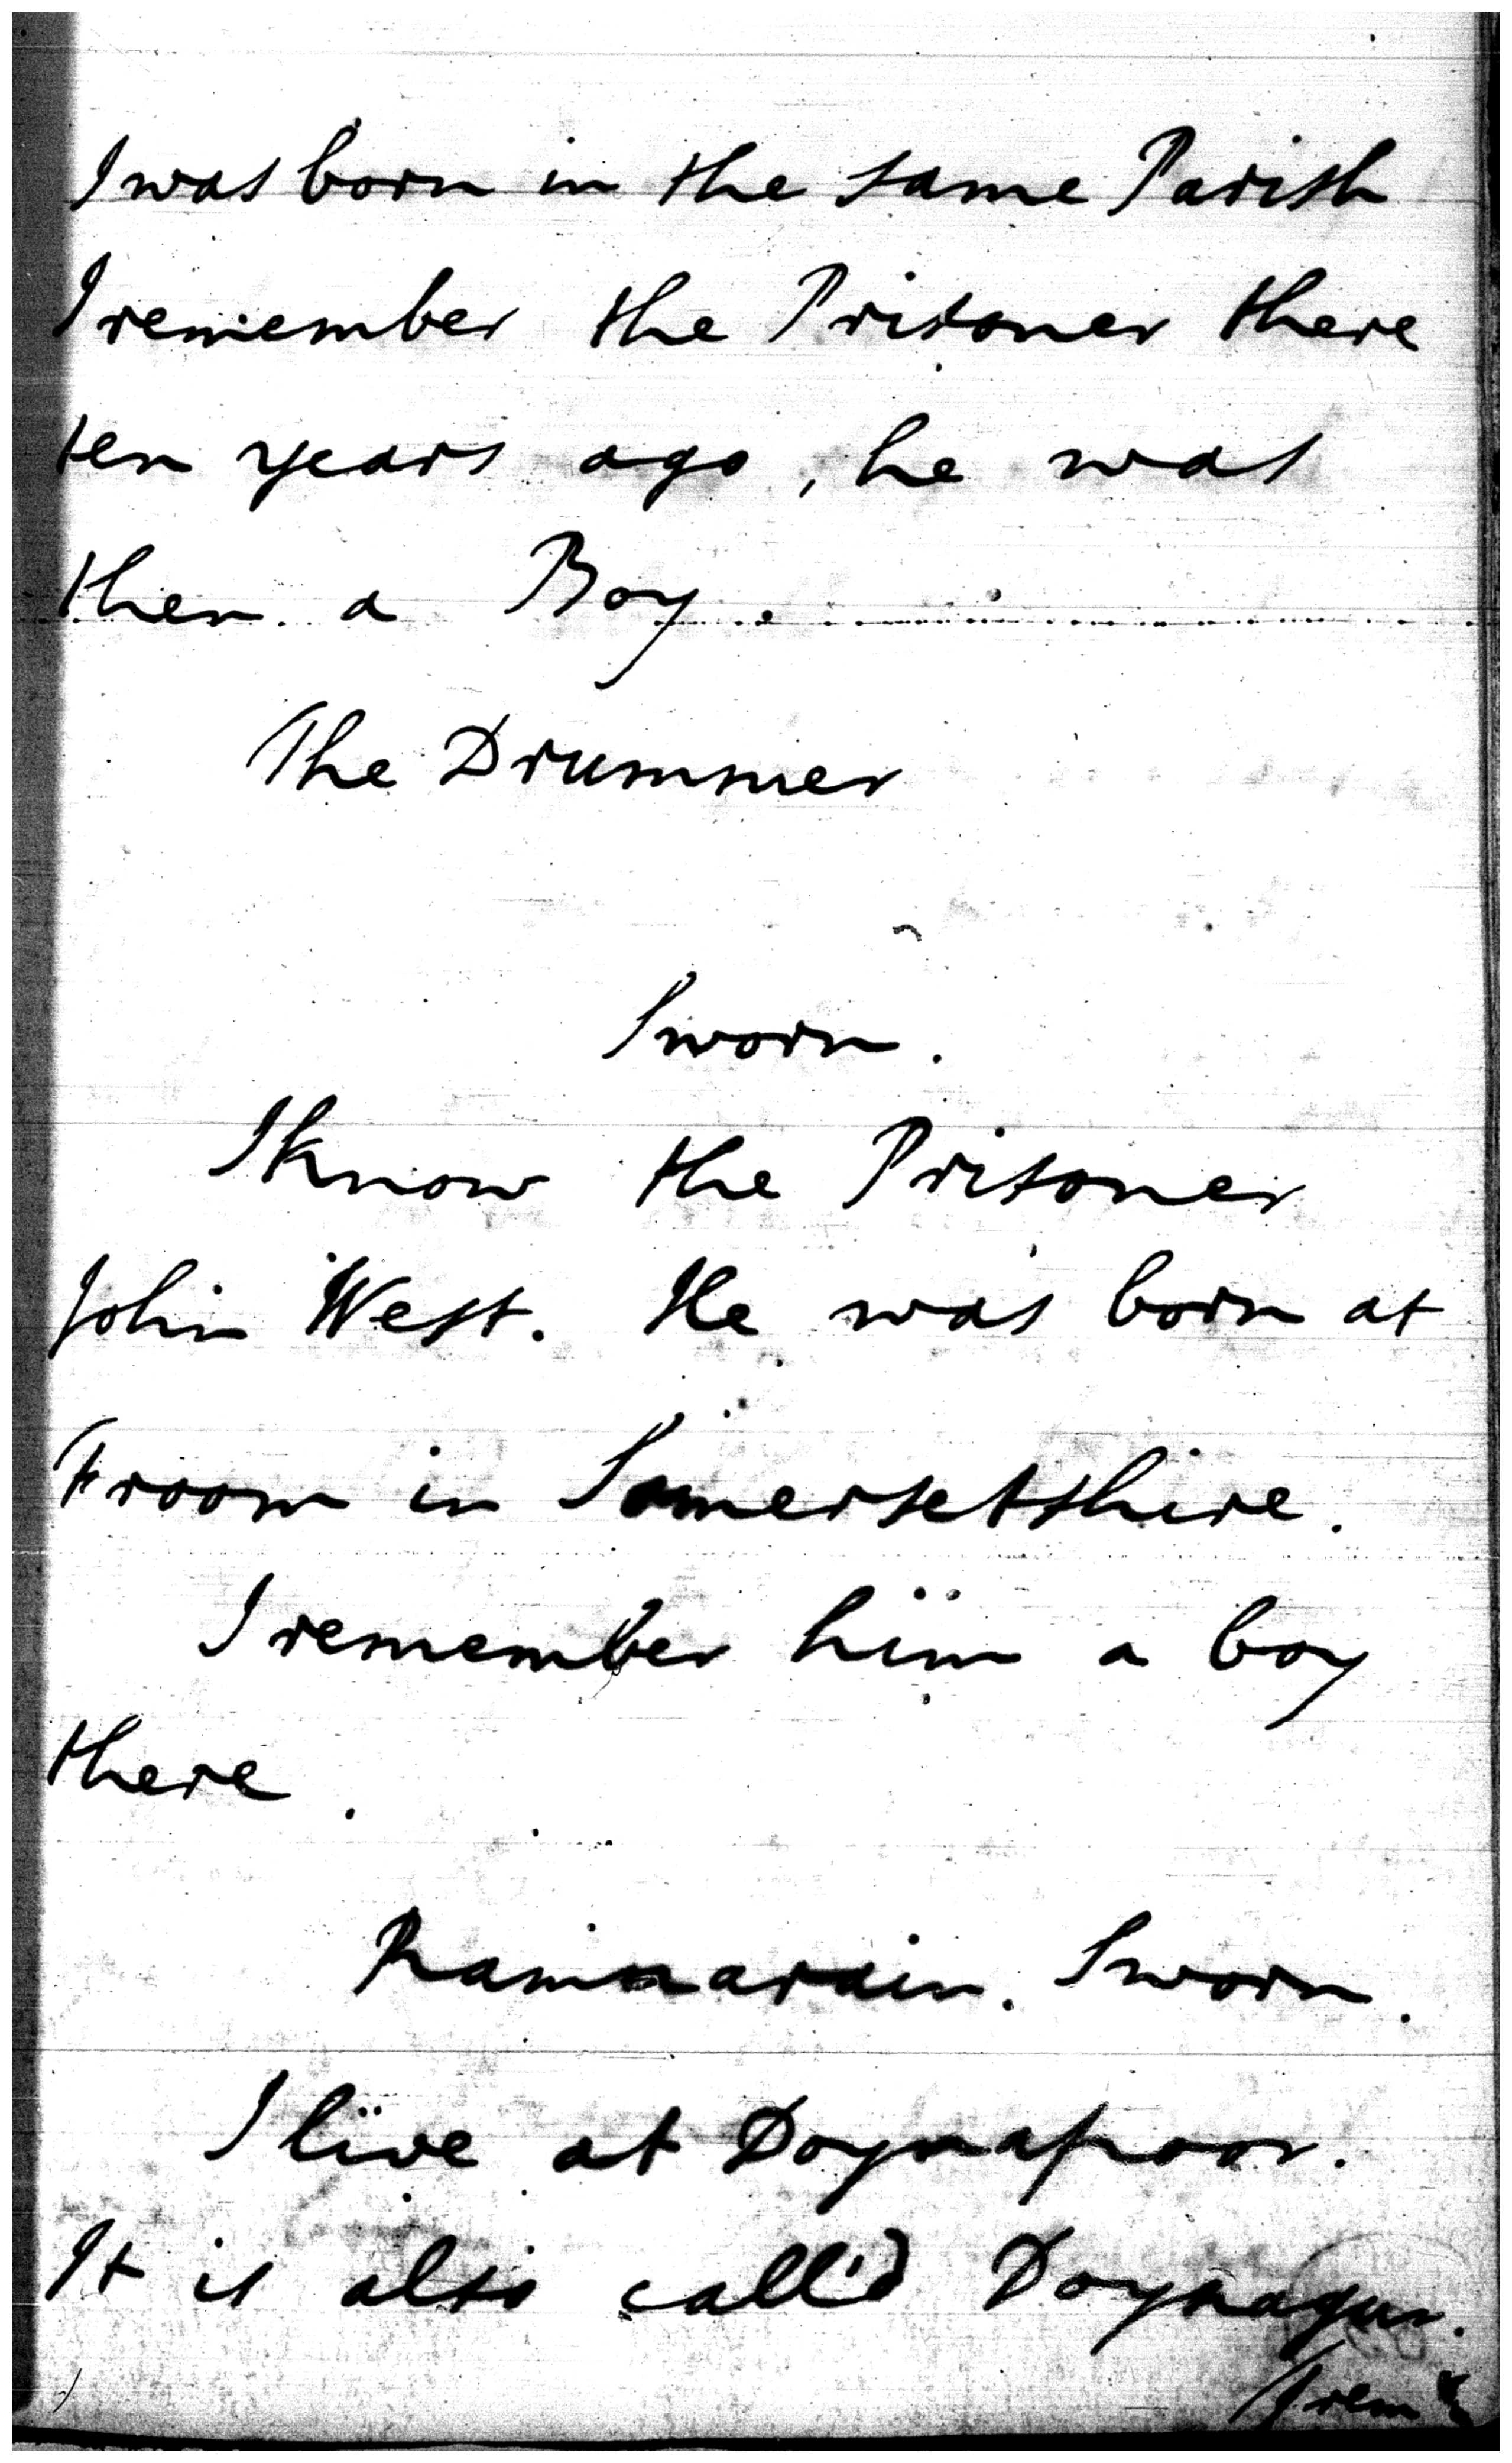 I was born in the same Parish
I remember the Prisoner there
ten years ago, he was
then a Boy.
The Drummer
Sworn.
I know the Prisoner
John West. He was born at
Froom in Somersetshire.
I remember him a boy
there.
Ramnarain. Sworn.
I live at Doynapoor.
It is also call'd Doynagur.
I rem